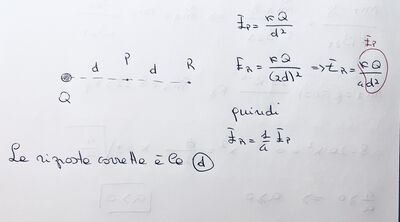 E_P = KQ/d²
E_P
E_R = KQ/(2d)² => E_R = KQ/4d²
d P d R
Q
quindi
E_R = 1/4 E_P
La risposta corretta è la d